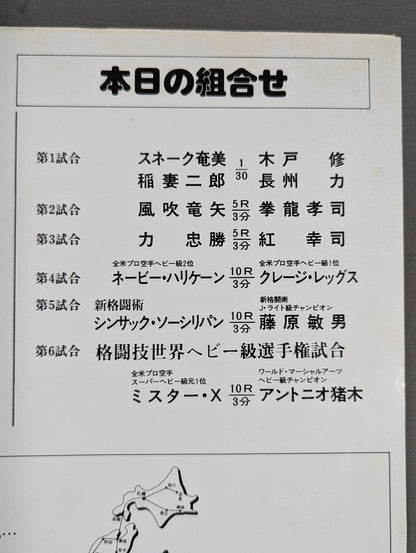 本日の組合せ
第1試合 スネーク奄美 1/30 木戸 修
稲妻二郎 長州 力
第2試合 風吹竜矢 5R/3分 拳龍孝司
第3試合 力 忠勝 5R/3分 紅 幸司
全米プロ空手ヘビー級2位 全米プロ空手ヘビー級1位
第4試合 ネービー・ハリケーン 10R/3分 クレージ・レッグス
第5試合 新格闘術 新格闘術
J・ライト級チャンピオン
シンサック・ソーシリパン 10R/3分 藤原敏男
第6試合 格闘技世界ヘビー級選手権試合
全米プロ空手 ワールド・マーシャルアーツ
スーパーヘビー級元1位 ヘビー級チャンピオン
ミスター・X 10R/3分 アントニオ猪木
旭川
札幌